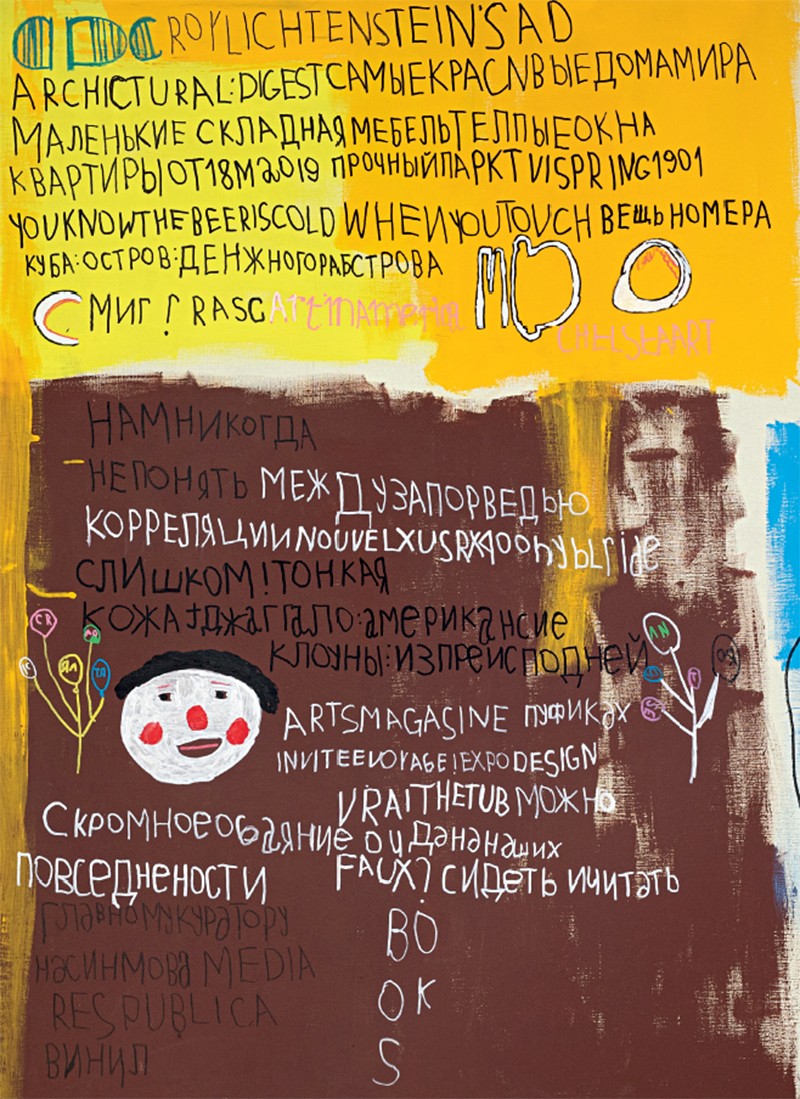 ROYLICHTENSTEIN'SAD
ARCHICTURAL:DIGESTСАМЫЕКРАСNВЫЕДОМАМИРА
МАЛЕНЬКИЕ СКЛАДНАЯМЕБЕЛЬТЕЛПЫЕОКНА
КВАРТИРЫОТ18М2019 ПРОЧНЫЙПАРКТVISPRING1901
YOUKNOWTHEBEERISCOLDWHENYOUTOUCH ВЕЩЬНОМЕРА
КУБА:ОСТРОВ:ДЕНЖНОГОРАБСТРОВА
С МИГ! RASCArt
CHELSEAART
НАМНИКОГДА
НЕПОНЯТЬ МЕЖДУЗАПОРВЕДЬЮ
КОРРЕЛЯЦИИNOUVELXUSRX400hybride
СЛИШКОМ!ТОНКАЯ
КОЖА+ДЖАГГАЛО:американсие
КЛОУНЫ:ИЗПРЕИСПОДНЕЙ
СК
ЯЛ
ТЯ
ЛN
ARTSMAGASINE ПУФИКАХ
INVITEEVOYAGE!EXPODESIGN
VRAITHETUB МОЖНО
СКРОМНОЕОБАЯНИЕ OUДАНАНАШИХ
ПОВСЕДНЕНОСТИ FAUX? СИДЕТЬ ИЧИТАТЬ
ГЛАВНОМУКУРАТОРУ
НАСИНМОВА MEDIA
RESPUBLICA
ВИНИЛ
BO
OK
S